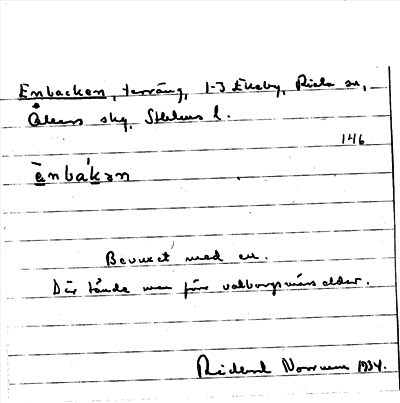 Enbacken, terräng, 1-3 Ekeby, Riala sn,
Åkers skg, Sthlms l.
146
ènbákən
Bevuxet med en.
Där tände man förr valborgsmässoeldar.
Rickard Norrman 1934.